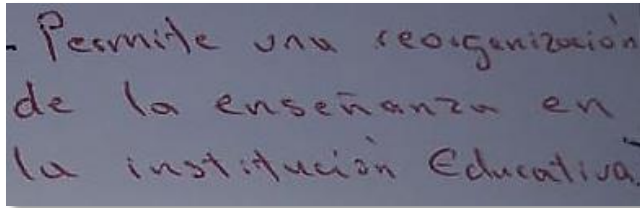 - Permite una reorganización
de la enseñanza en
la institución Educativa.